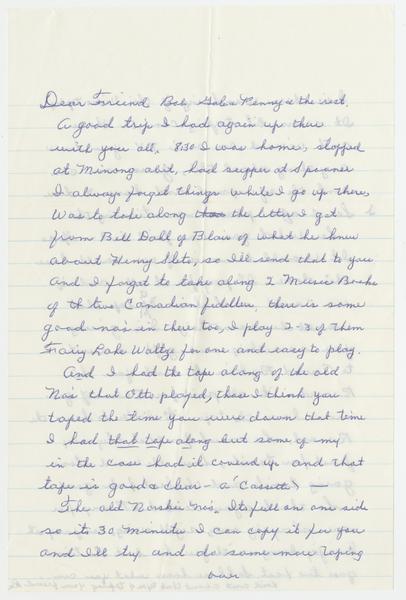 Dear Friend Bob, Gail & Penny & the rest.
A good trip I had again up there
with you all. 8:30 I was home, stopped
at Minong abit, had supper at Spooner
I always forget things while I go up there,
Was to take along the letter I got
from Bill Dahl of Blair of what he knew
about Henry, so I'll send that to you
And I forget to take along 2 Music Books
of the two Canadian fiddlers, there is some
good nos in there too, I play 2-3 of them
Fairy Lake Waltze for one and easy to play.
And I had the tape along of the old
Nos that Otto played, those I think you
taped the time you were down that time
I had that tape along but some of my
in the case had it covered up and that
tape is good & clear - a (Cassette) —
The old Norskie Nos. Its full on one side
so its 30 Minute I can copy it for you
and I'll try and do some more taping
over